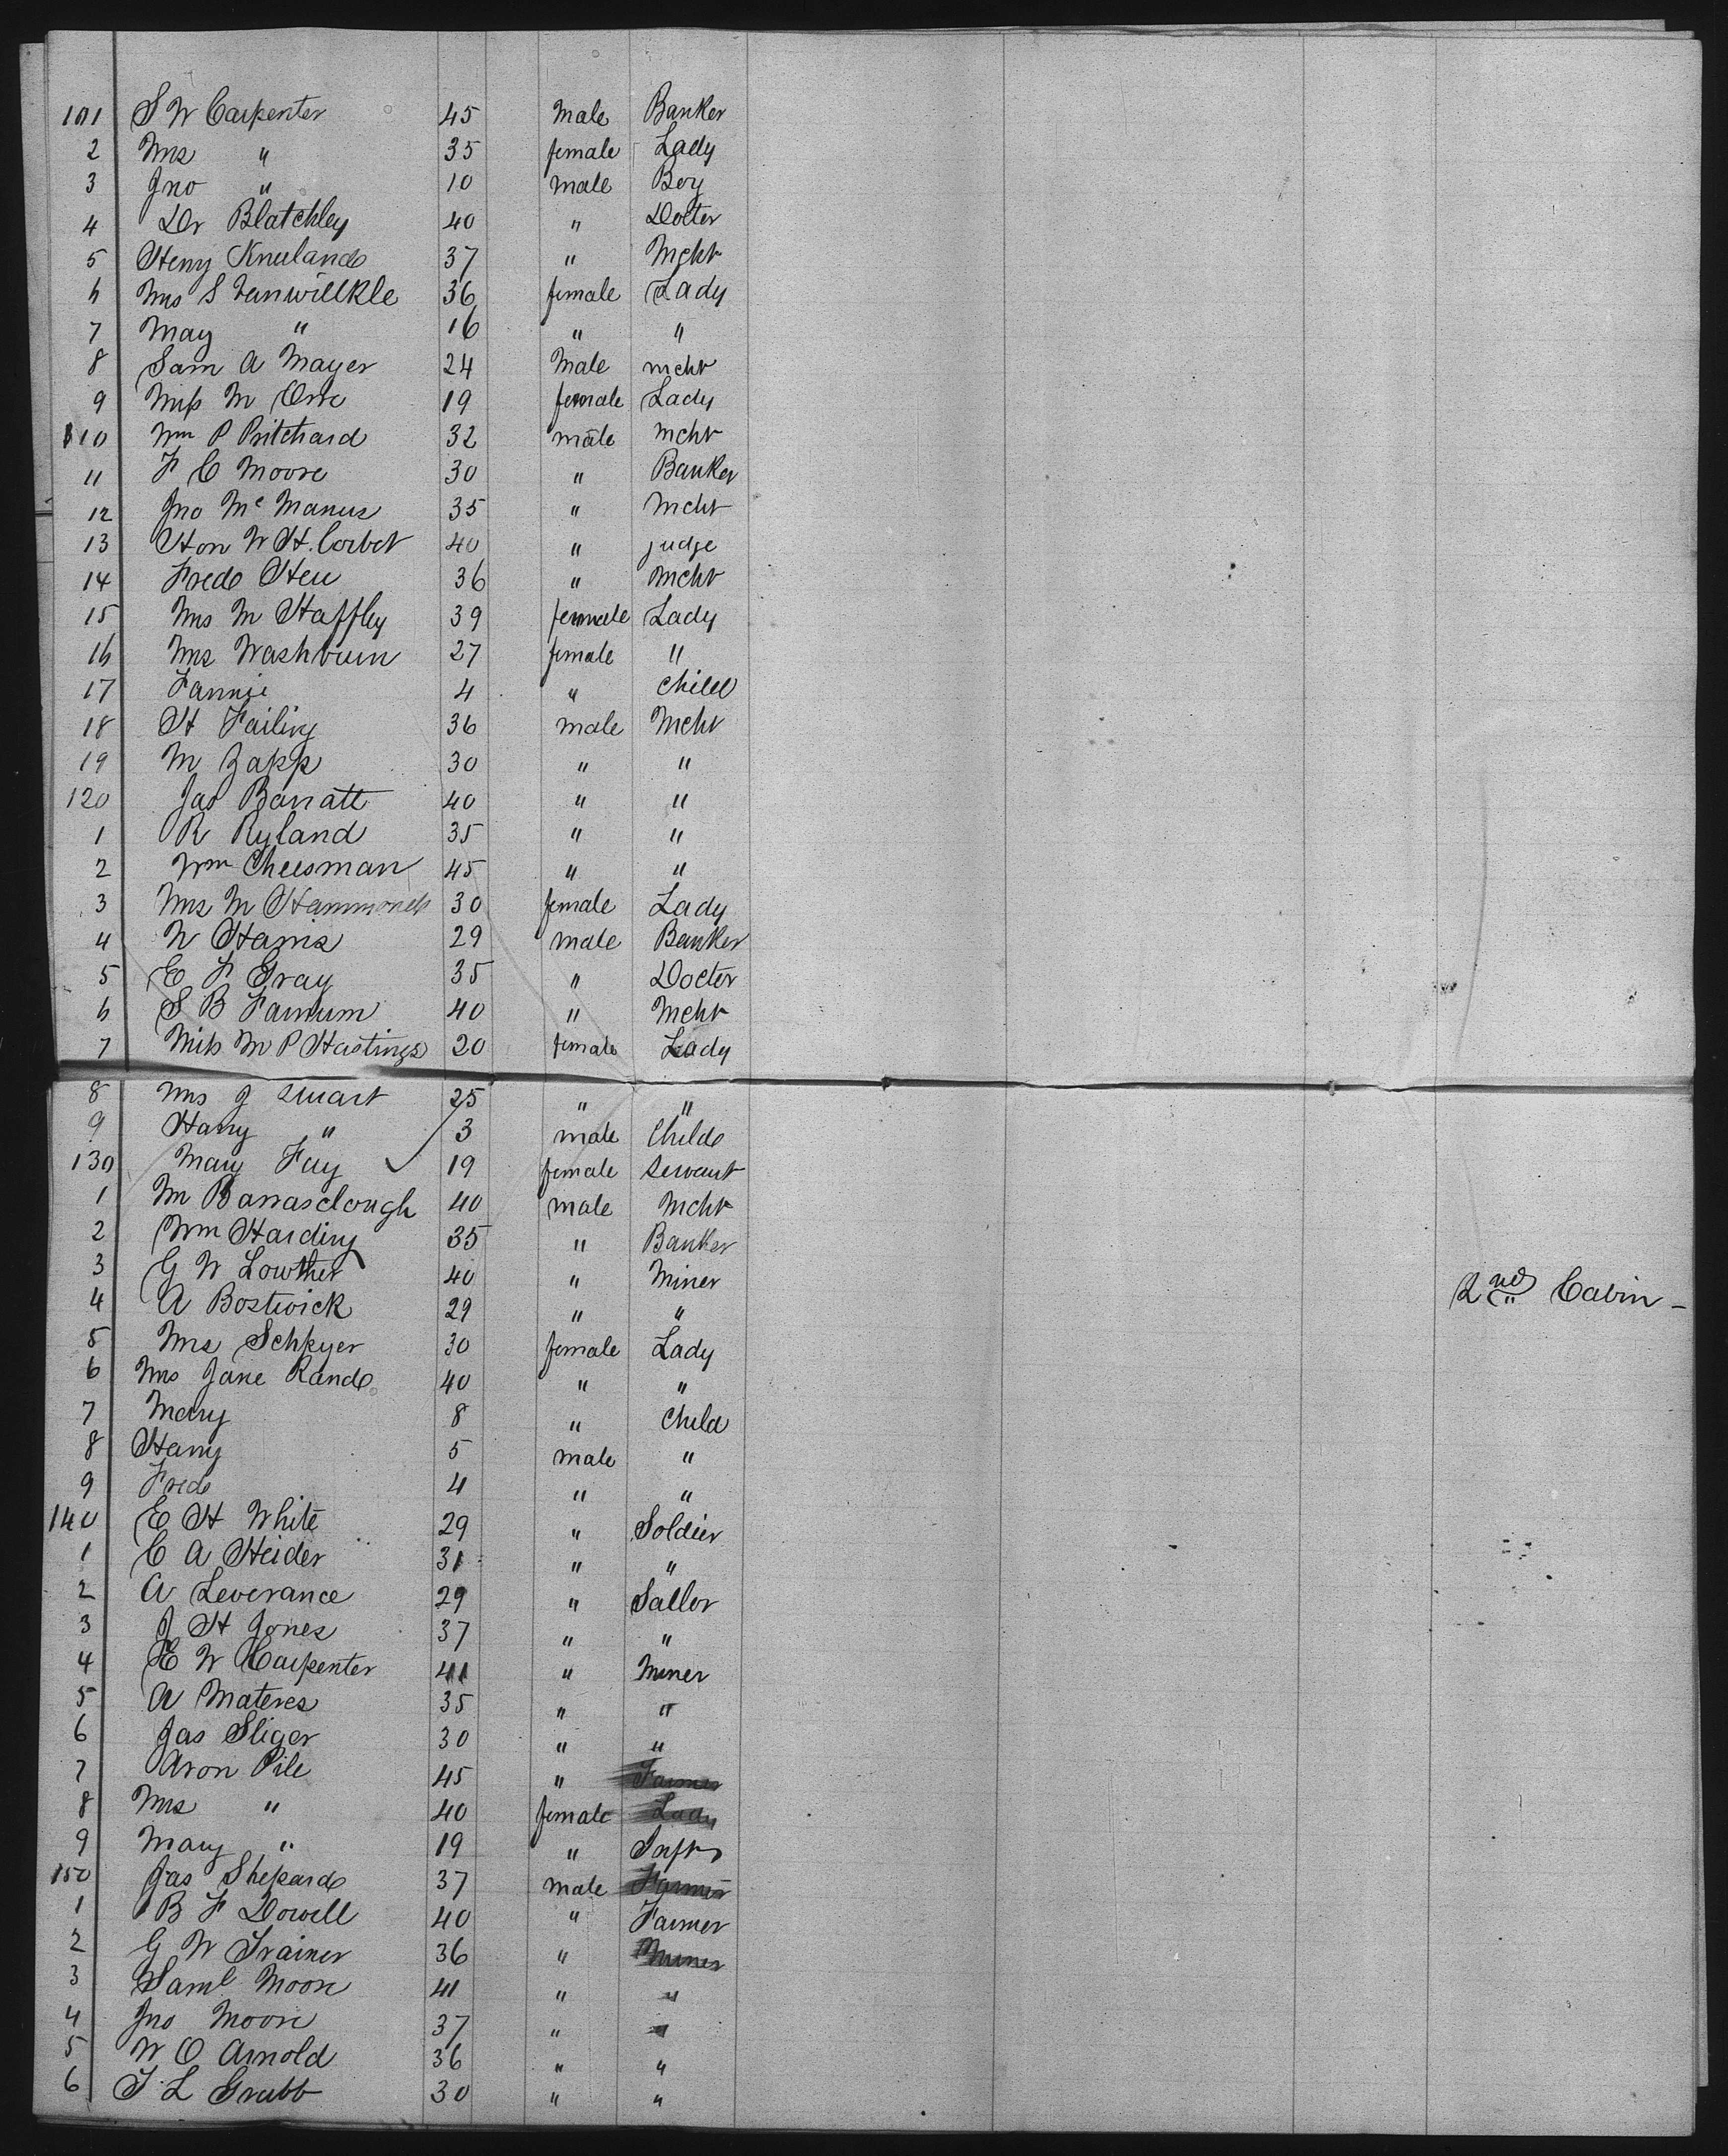 101 S W Carpenter 45 Male Banker
2 Mrs " 35 female Lady
3 Jno " 10 male Boy
4 Dr Blatchley 40 " Docter
5 Heny Kneeland 37 " Mcht
6 Mrs S Vanwillkle 36 female Lady
7 May " 16 " "
8 Sam A Mayer 24 Male mcht
9 Miss M Orre 19 female Lady
110 Wm P Pritchard 32 male mcht
11 F C Moore 30 " Banker
12 Jno Mc Manus 35 " Mcht
13 Hon W H. Corbet 40 " judge
14 Fred Heu 36 " mcht
15 Mrs M Haffley 39 female Lady
16 Mrs Washburn 27 female "
17 Fannie 4 " child
18 H Failing 36 male Mcht
19 M Zapp 30 " "
120 Jas Barratt 40 " "
1 R Ryland 35 " "
2 Wm Cheesman 45 " "
3 Mrs M Hammond 30 female Lady
4 W Harris 29 male Banker
5 E F Gray 35 " Docter
6 S B Farnum 40 " Mcht
7 Miss M P Hastings 20 female Lady
8 Mrs J Stuart 25 " "
9 Harry " 3 male Child
130 Mary Fay 19 female servant
1 M Barrasclough 40 male Mcht
2 Wm Harding 35 " Banker
3 G W Lowther 40 " Miner
2nd " Cabin -
4 A Bostwick 29 " "
5 Mrs Schkyer 30 female Lady
6 Mrs Jane Rand 40 " "
7 Mary 8 " Child
8 Harry 5 male "
9 Fred 4 " "
140 E H White 29 " Soldier
1 C A Heider 31 " "
2 A Leverance 29 " Sailor
3 J H Jones 37 " "
4 E W Carpenter 41 " Miner
5 A Mateves 35 " "
6 Jas Sliger 30 " "
7 Aron Pile 45 " Farmer
8 Mrs " 40 female Lady
9 Mary " 19 "
150 Jas Shepard 37 male Farmer
1 B F Dowell 40 " Farmer
2 G W Trainer 36 " Miner
3 Saml Moore 41 " "
4 Jno Moore 37 " "
5 W O Arnold 36 " "
6 T L Grubb 30 " "